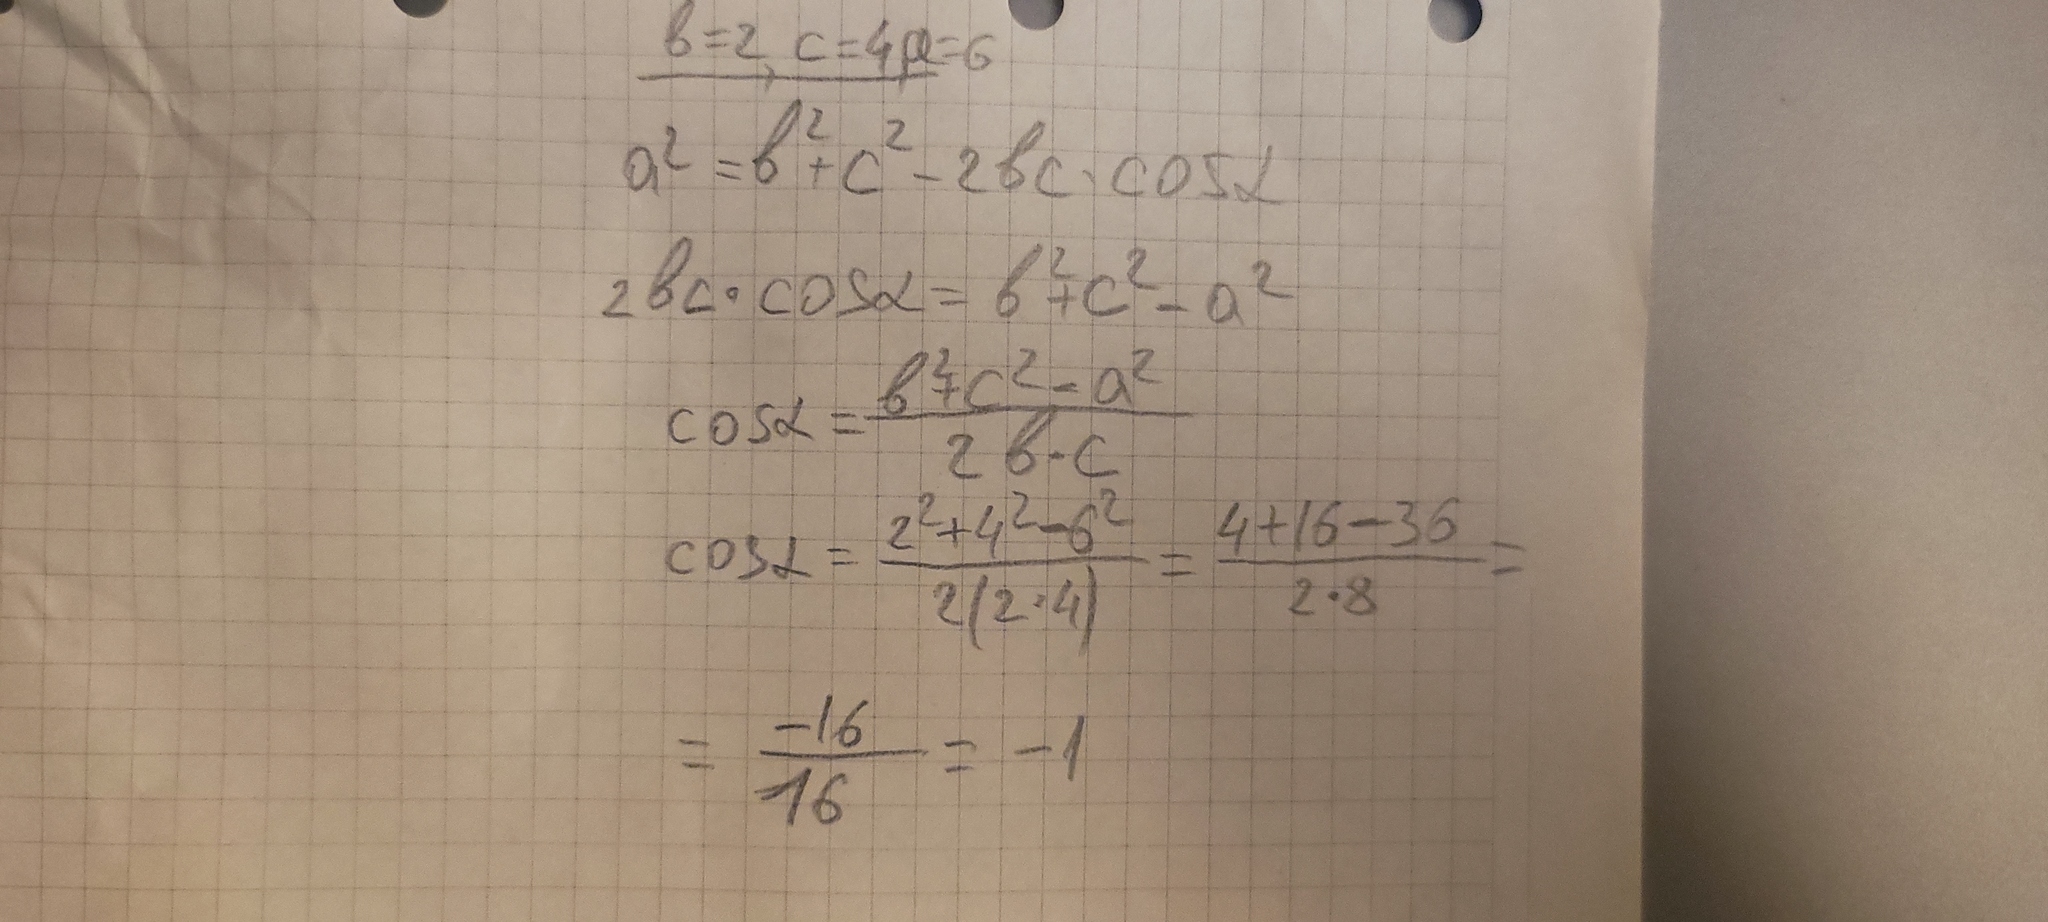 b=2, c=4, a=6
a² = b² + c² - 2bc · cosα
2bc · cosα = b² + c² - a²
cosα = (b² + c² - a²) / (2b·c)
cosα = (2² + 4² - 6²) / (2(2·4)) = (4+16-36) / (2·8) =
= -16 / 16 = -1